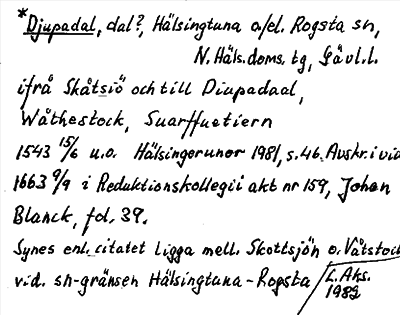 *Djupadal, dal?, Hälsingtuna o/el. Rogsta sn,
N. Häls. doms. tg, Gävl. l.
ifrå Skåtsiö och till Diupadaal,
Wåthestock, Suarffuetiern
1543 15/6 u.o. Hälsingerunor 1981, s. 46. Avskr. i vid.
1663 9/9 i Reduktionskollegii akt nr 159, Johan
Blanck, fol. 39.
Synes enl. citatet ligga mell. Skottsjön o. Våtstock
vid. sn-gränsen Hälsingtuna-Rogsta
L. Aks.
1982